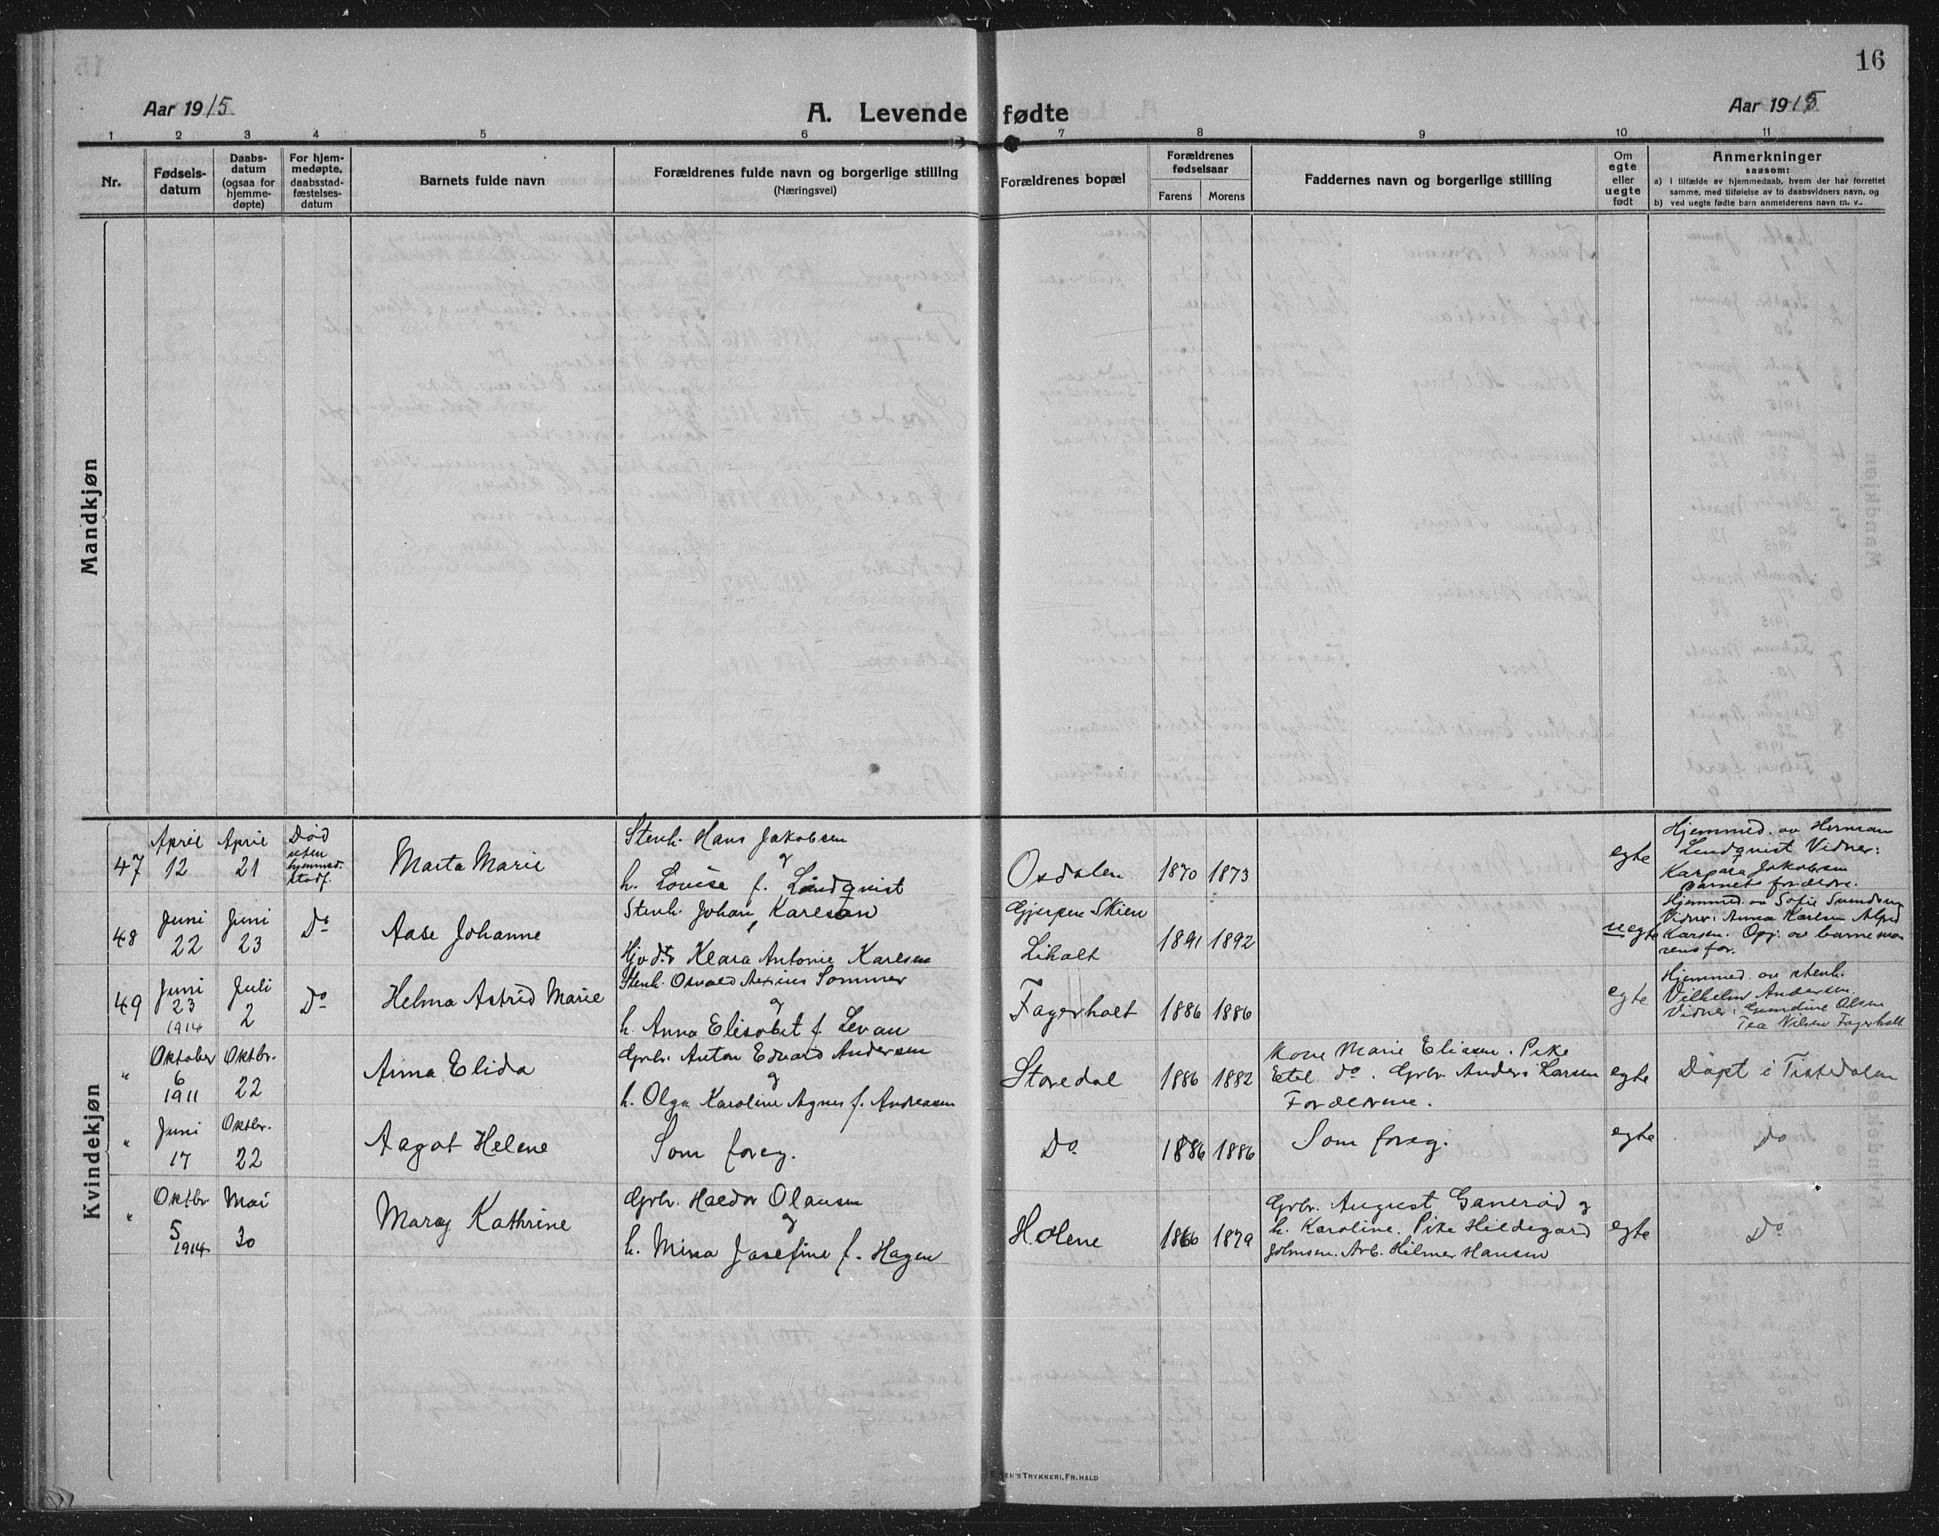 16
Aar 1915 A. Levende fødte Aar 1915
1 2 3 4 5 6 7 8 9 10 11
Nr.
Fødsels-
datum
Daabs-
datum
(ogsaa for
hjemme-
døpte)
For hjem-
medøpte,
daabsstad-
fæstelses-
datum
Barnets fulde navn
Forældrenes fulde navn og borgerlige stilling
(Næringsvei)
Forældrenes bopæl
Forældrenes
fødselsaar
Farens Morens
Faddernes navn og borgerlige stilling
Om
egte
eller
uegte
født
Anmerkninger
saasom:
a) i tilfælde av hjemmedaab, hvem der har forrettet
samme, med tilføielse av to daabsvidners navn, og
b) ved uegte fødte barn anmelderens navn m. v..
Mandkjøn
Kvindekjøn
47
April
12
April
21
Død
uten
hjemmed.
stadf.
Marta Marie
Stenh. Hans Jakobsen
og
h. Lovise f. Lindqvist
Oxdalen
1870 1873
egte
Hjemmed. av Herman
Lindqvist Vidner:
Jakobsen
barnets forældre.
48
Juni
22
Juni
23
Do
Aase Johanne
Stenh. Johan Karlson
Klara Antonie Karlsen
Gjerpen Skien
Liholt
1891 1892
uegte
Hjemmed. av Sofie Svendsen
Vidner: Anna Karlsen Alfred
Karsen. Opg. av barnemo
rens far.
49
Juni
23
1914
Juli
2
Do
Helma Astrid Marie
Stenh. Osvald Sommer
og
h. Anna Elisabet f. Levan
Fagerholt
1886 1886
egte
Hjemmed. av stenh.
Vilhelm Andersen.
Vidner: Gundine Olsen
Tea Nilsen Fagerholt
"
Oktober
6
1911
Oktbr.
22
Anna Elida
Grbr. Anton Edvard Andersen
og
h. Olga Karoline Agnes f. Andreasen
Storedal
1886 1882
Kone Marie Eliasen. Pike
Etel do. Grbr. Anders Larsen
Forældrene.
egte
Døpt i Tistedalen
"
Juni
17
Oktbr.
22
Aagot Helene
Som foreg.
Do
1886 1886
Som foreg.
egte
Do
"
Oktbr
5
1914
Mai
30
Mary Kathrine
Grbr. Haldor Olausen
og
h. Mina Josefine f. Hagen
Holene
1866 1879
Grbr. August Ganerød og
h. Karoline. Pike Hildegard
Johnsen. Arb. Hilmer Hansen
egte
Do
TRYKKERI, FR.HALD